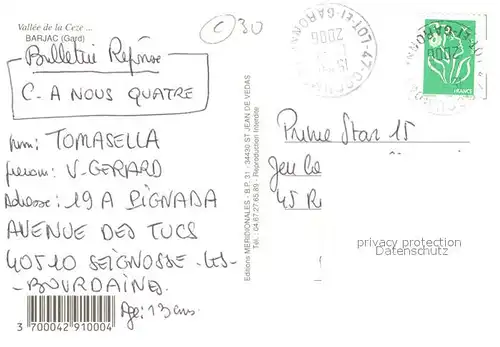 Vallée de la Ceze ...
BARJAC (Gard)
C30
Bulletin Réponse
C. A NOUS QUATRE
nom: TOMASELLA
prenom: V-GERARD
Adresse: 19 A PIGNADA
AVENUE DES TUCS
40510 SEIGNOSSE-LES-
-BOURDAINES
Age: 13 ans.
3 700042 910004
Editions MERIDIONALES - B.P. 31 - 34430 ST JEAN DE VEDAS
Tél. : 04.67.27.65.89 - Reproduction Interdite
47-LOT-ET-GARONNE
2006
2006
FRANCE
Prime Star 15
Jeu
45
privacy protection
Datenschutz